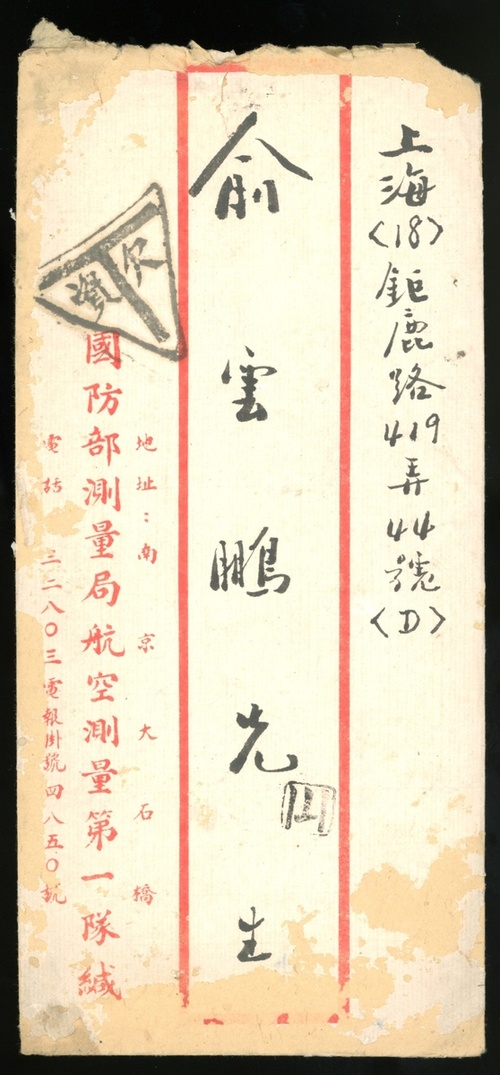 上海<18>鉅鹿路419弄44號<D>
俞雲鵬先生
地址：南京大石橋
國防部測量局航空測量第一隊緘
電話 三二八〇三電報掛號四八五〇號
欠T資